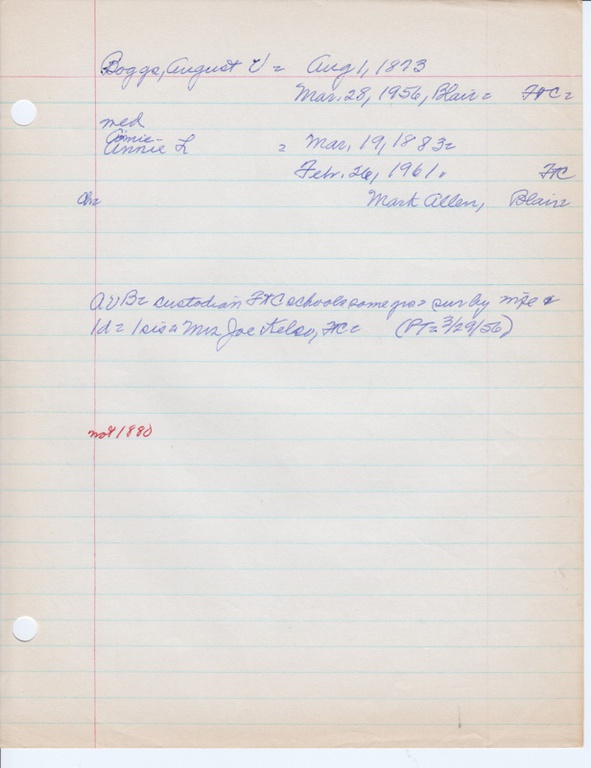 Boggs, August V = Aug 1, 1873
Mar. 28, 1956, Blair = FtC =
med
Amie-
Annie L = Mar, 19, 1883 =
Febr. 26, 1961. FtC
Ch= Mark Allen, Blair=
AVB = custodian FtC schools some grs = sur by wife &
1d = 1 sis = Mrs Joe Kelso, FtC = (PT = 3/29/56)
not 1880